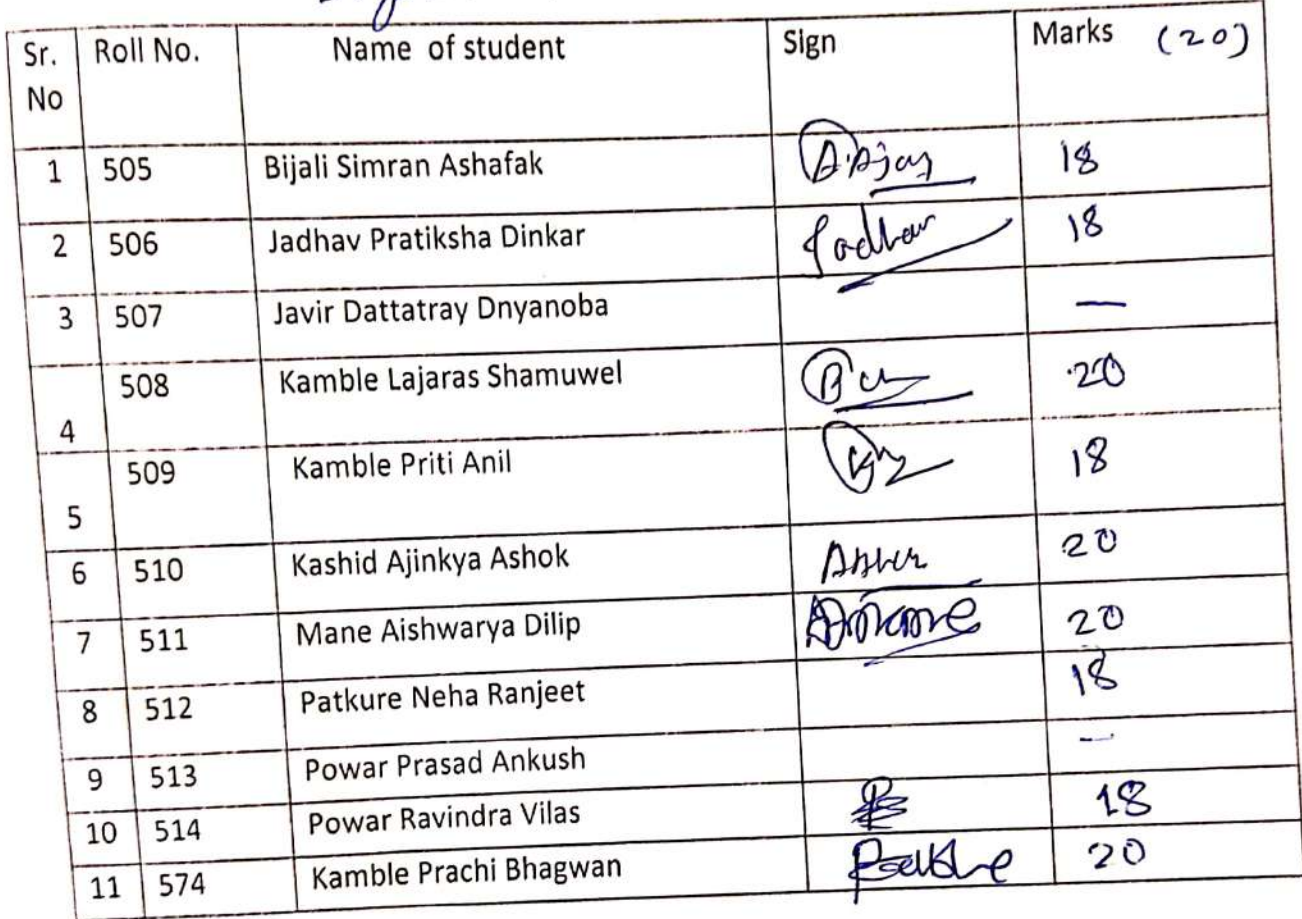 Sr. No Roll No. Name of student Sign Marks (20)
1 505 Bijali Simran Ashafak 18
2 506 Jadhav Pratiksha Dinkar Jadhav 18
3 507 Javir Dattatray Dnyanoba —
4 508 Kamble Lajaras Shamuwel 20
5 509 Kamble Priti Anil 18
6 510 Kashid Ajinkya Ashok 20
7 511 Mane Aishwarya Dilip 20
8 512 Patkure Neha Ranjeet 18
9 513 Powar Prasad Ankush —
10 514 Powar Ravindra Vilas 18
11 574 Kamble Prachi Bhagwan 20